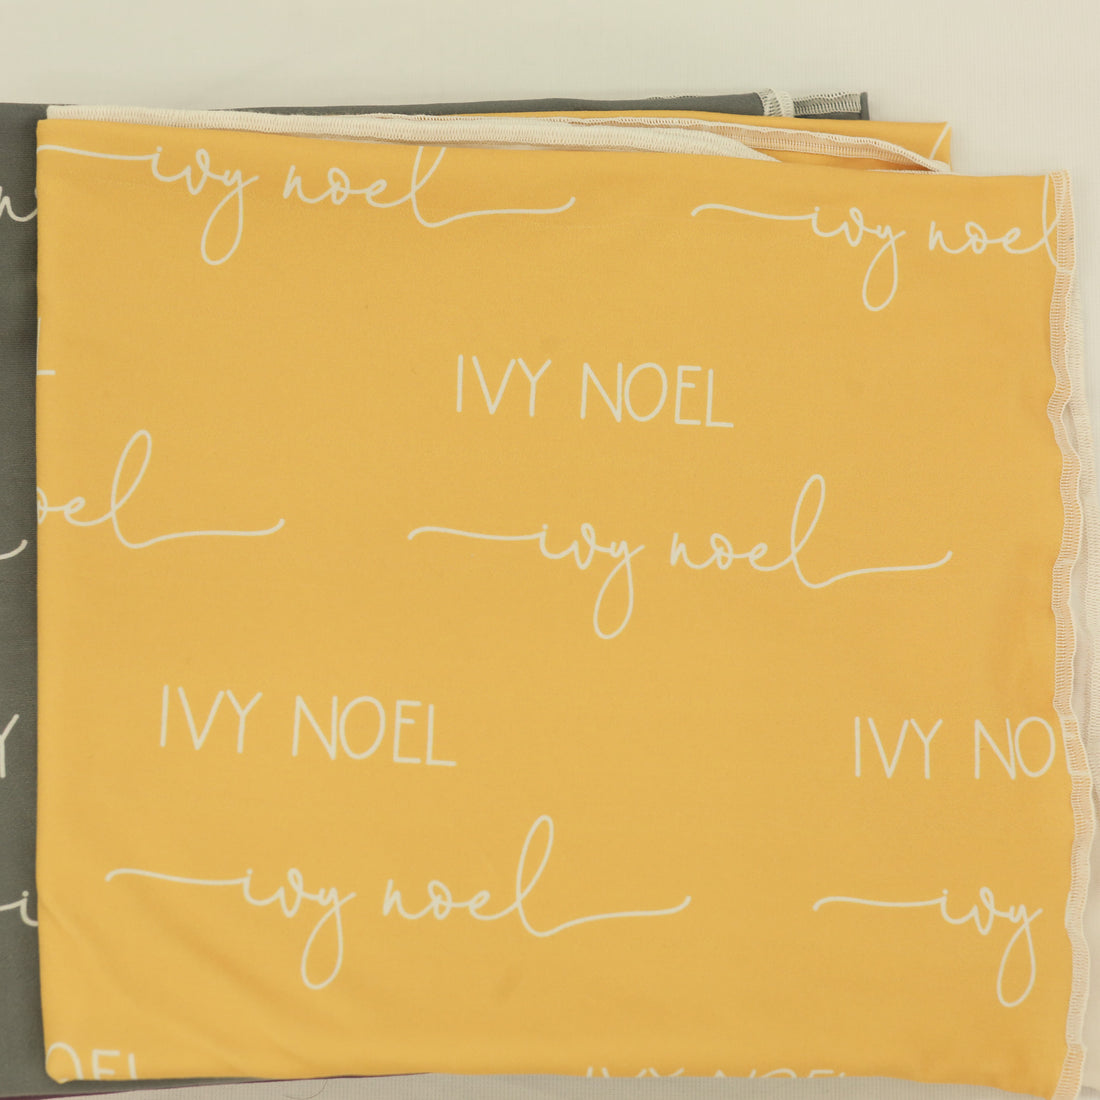 ivy noel
ivy noel
IVY NOEL
oel
ivy noel
IVY NOEL
IVY NO
ivy noel
ivy
OEL
IVY NOEL